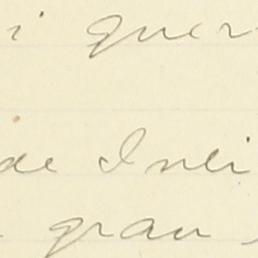 i quer
de Inli
gran